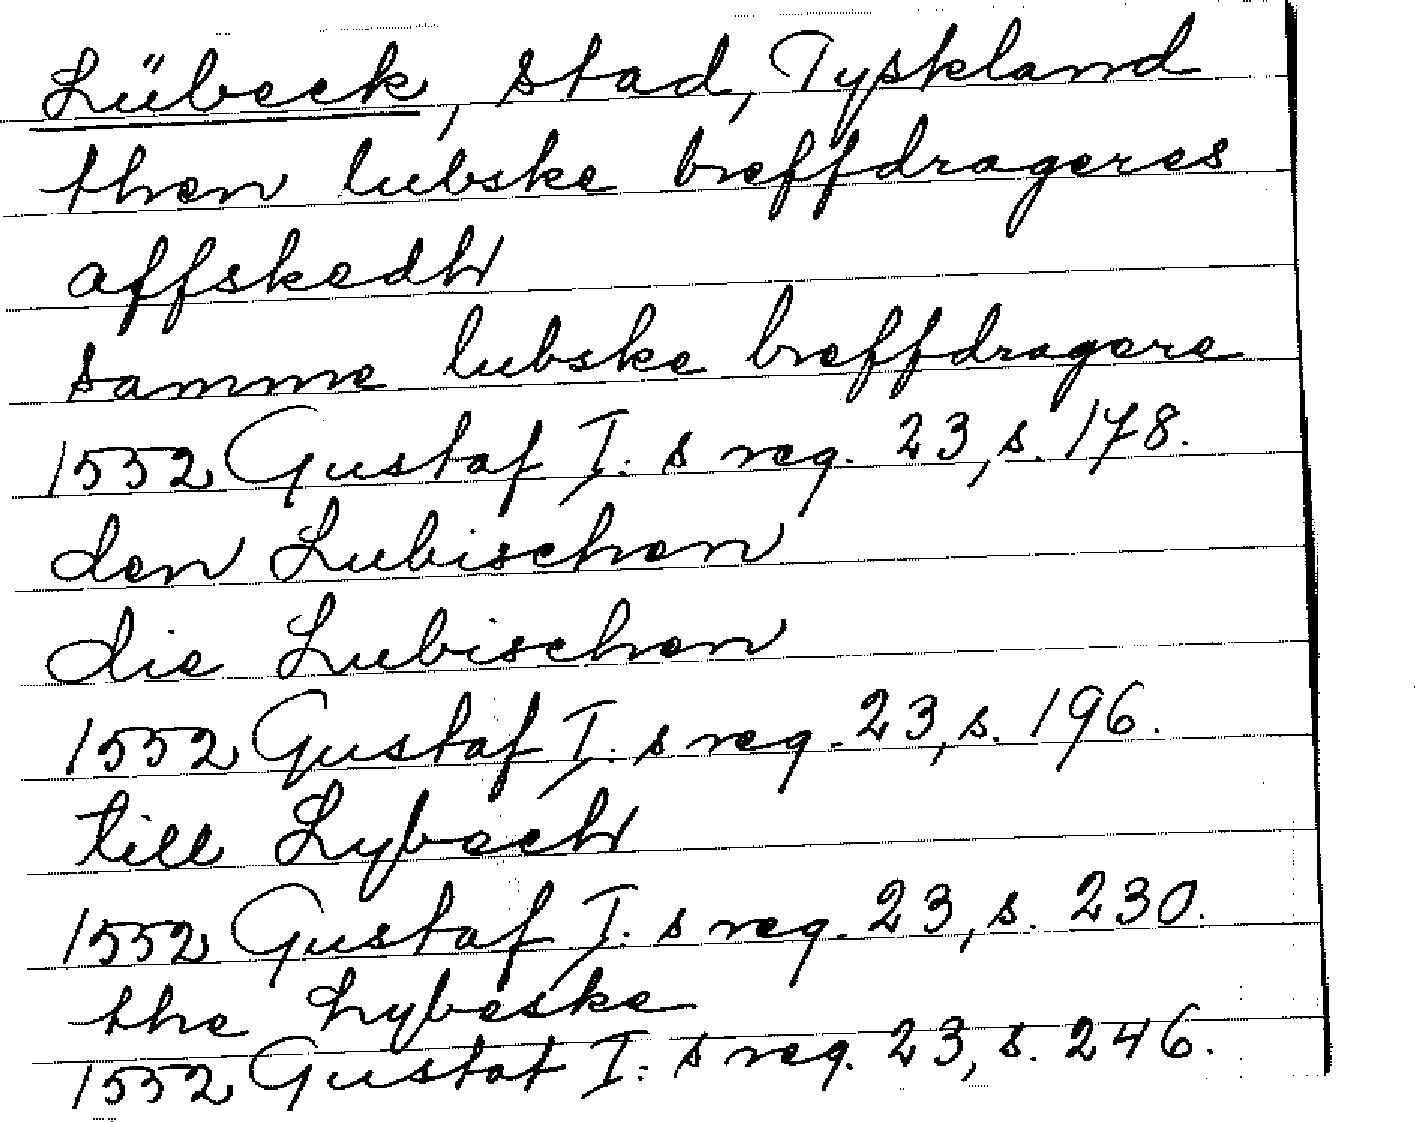 Lübeck, stad, Tyskland
then lubske breffdrageres
affskedh
samme lubske breffdragere
1552 Gustaf I:s reg. 23, s. 178.
den Lubischen
die Lubischen
1552 Gustaf I:s reg. 23, s. 196.
till Lybech
1552 Gustaf I:s reg. 23, s. 230.
the Lybeske
1552 Gustaf I:s reg. 23, s. 246.